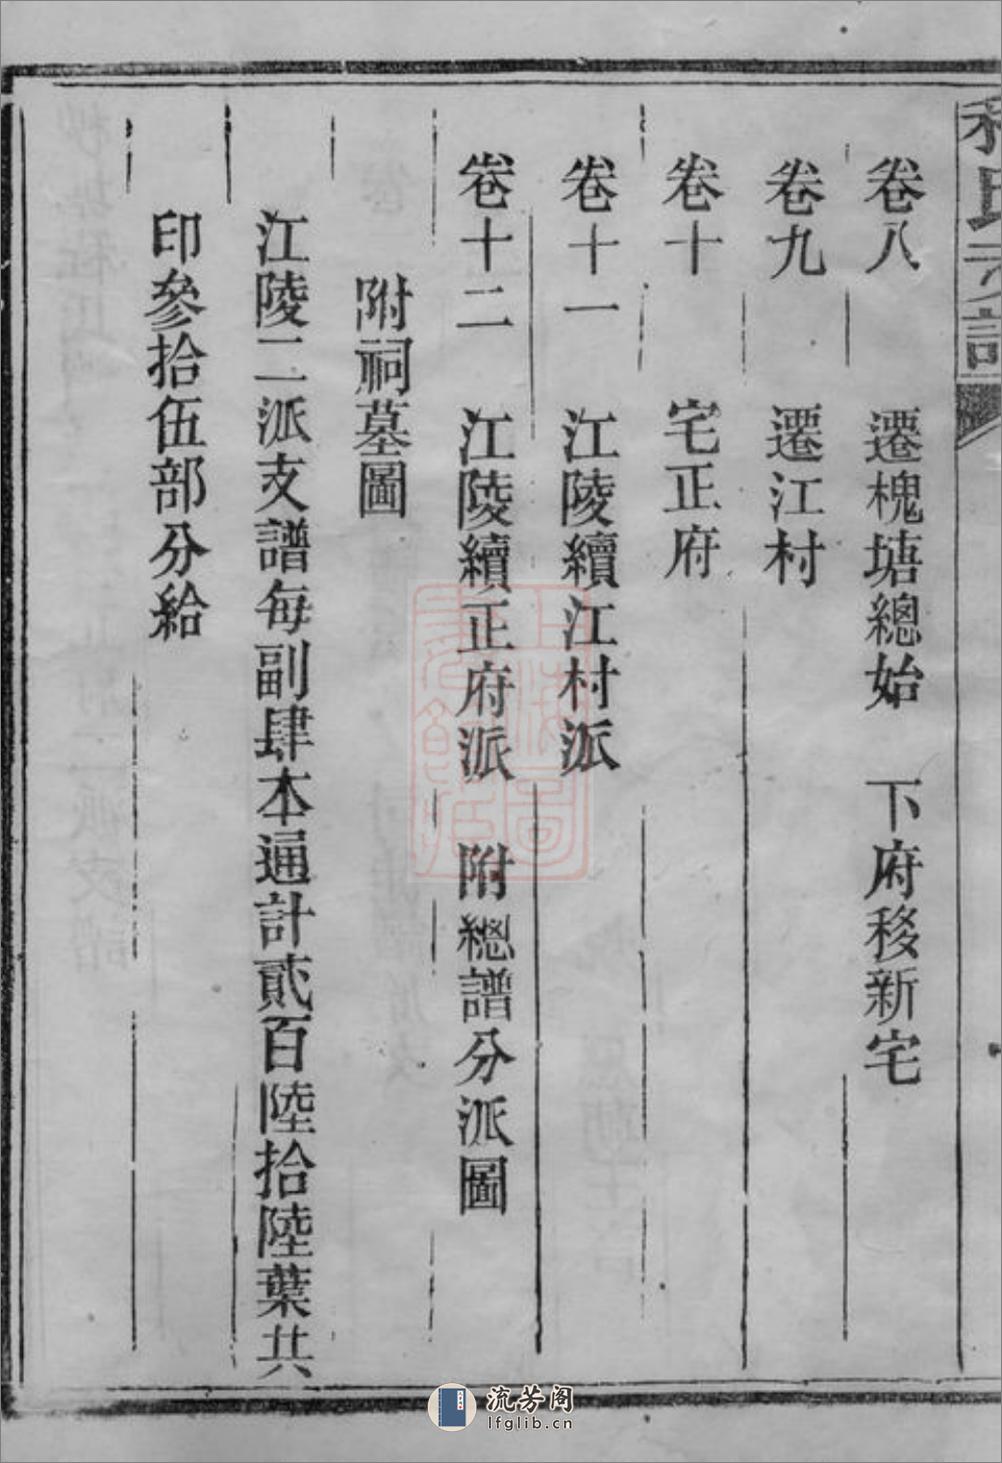 卷八　遷槐塘總始　下府移新宅
卷九　遷江村
卷十　宅正府
卷十一　江陵續江村派
卷十二　江陵續正府派　附總譜分派圖
附祠墓圖
江陵二派支譜每副肆本通計貳百陸拾陸葉共
印參拾伍部分給
流芳阁
lfglib.cn